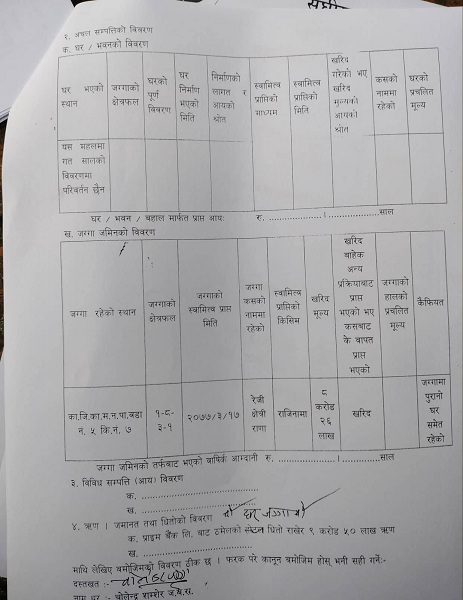 २. अचल सम्पत्तिको विवरण
क. घर / भवनको विवरण
घर भएको स्थान
जग्गाको क्षेत्रफल
घरको पूर्ण विवरण
घर निर्माण भएको मिति
निर्माणको लागत र आयको श्रोत
स्वामित्व प्राप्तिको माध्यम
स्वामित्व प्राप्तिको मिति
खरिद गरेको भए खरिद मूल्यको आयको श्रोत
कसको नाममा रहेको
घरको प्रचलित मूल्य
यस महलमा गत सालको विवरणमा परिवर्तन छैन
घर / भवन / बहाल मार्फत प्राप्त आयः रु. ....................।....................साल
ख. जग्गा जमिनको विवरण
जग्गा रहेको स्थान
जग्गाको क्षेत्रफल
जग्गाको स्वामित्व प्राप्त मिति
जग्गा कसको नाममा रहेको
स्वामित्व प्राप्तिको किसिम
खरिद मूल्य
खरिद बाहेक अन्य प्रक्रियाबाट प्राप्त भएको भए कसबाट के बापत प्राप्त भएको
जग्गाको हालको प्रचलित मूल्य
कैफियत
का.जि.का.म.न.पा.वडा नं. ५ कि.नं. ७
१-८-३-१
२०७७/३/१७
रेजी क्षेत्री राणा
राजिनामा
८ करोड २६ लाख
खरिद
जग्गामा पुरानो घर समेत रहेको
जग्गा जमिनको तर्फबाट भएको वार्षिक आम्दानी रु. ....................।....................साल
३. विविध सम्पत्ति (आय) विवरण
क. ........................................
ख. ........................................
४. ऋण । जमानत तथा धितोको विवरण
घर जग्गा
क. प्राइम बैंक लि. बाट ठमेलको धितो राखेर ९ करोड ५० लाख ऋण
ख. ........................................
माथि लेखिए बमोजिमको विवरण ठीक छ । फरक परे कानून बमोजिम होस् भनी सही गर्नेः-
दस्तखत :-
नाम थर :- चोलेन्द्र शम्शेर ज.ब.रा.